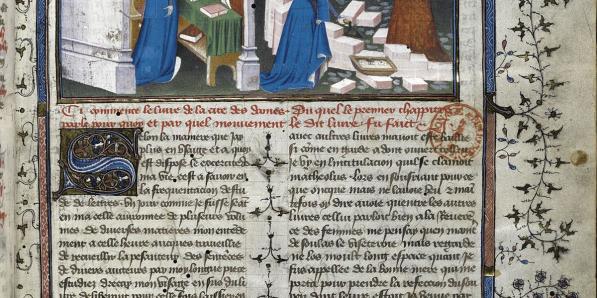 Cy commence le livre de la cite des dames. Du quel le premier chappitre
parle pour quoy et par quel mouvement le dit livre fu fait.
Selon la maniere que jay
plus en usaige et a quoy
est dispose le excercite de
ma vie cest a savoir en
la frequentacion destu
de de lettres. Un jour comme je fusse seant
en ma celle avironnee de plusieurs volu
mes de diverses matieres mon entende
ment a celle heure auques travaillie
de recueillir la pesanteur des sentences
de divers aucteurs par moy longue piece
estudiez drecay mon visaige en sus du li
avec autres livres mavoit este baillie
si come en garde a dont ouvert cellui
je vy en lintitulacion quil se clamoit
matheolus. lors en soubzriant pour ce
que oncques mais ne lavoie veu. z maí
tefois oy dire avoie quentre les autres
livres cellui parloit bien a la reverece
des femmes me pensay quen maniere
de soulas le visiteroie. mais regarde
ne los moult long espace quant je
fus appellee de la bonne mere qui me
porta pour prendre la reffection du sou